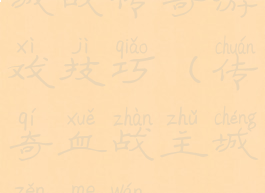 xì jì qiǎo chuán
戏技巧（传
qí xuě zhàn zhǔ chéng
奇血战主城
zěn me wán